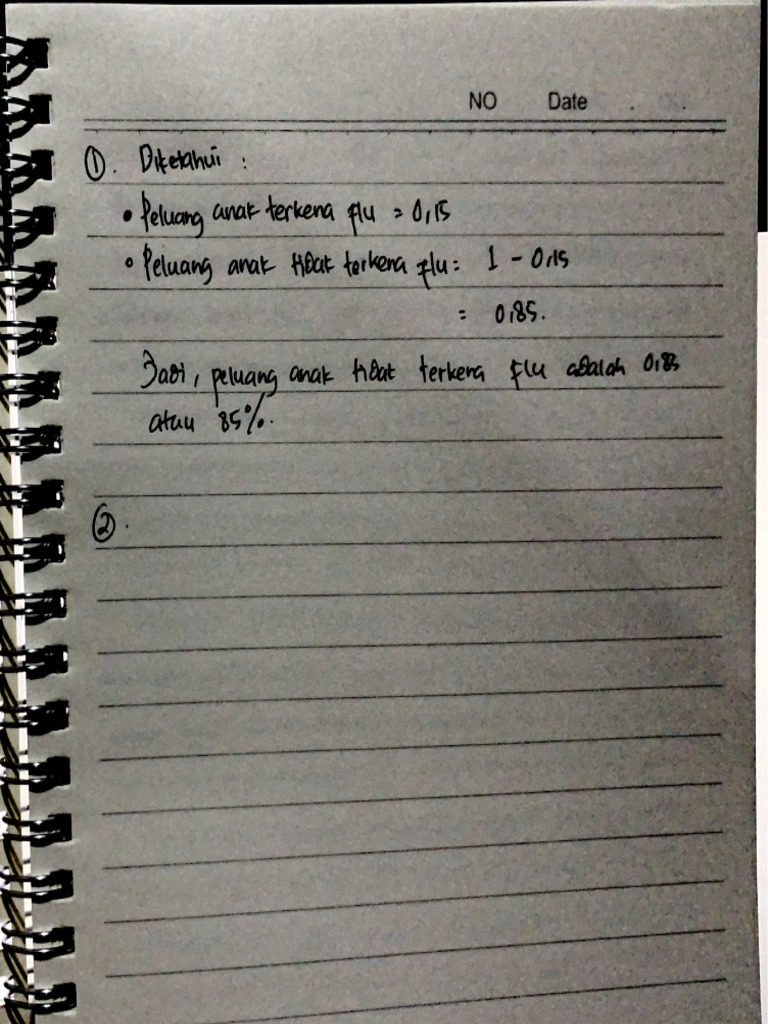 NO Date . .
①. Diketahui :
• Peluang anak terkena flu = 0,15
• Peluang anak tidak terkena flu = 1 - 0,15
= 0,85.
Jadi, peluang anak tidak terkena flu adalah 0,85
atau 85%.
②.